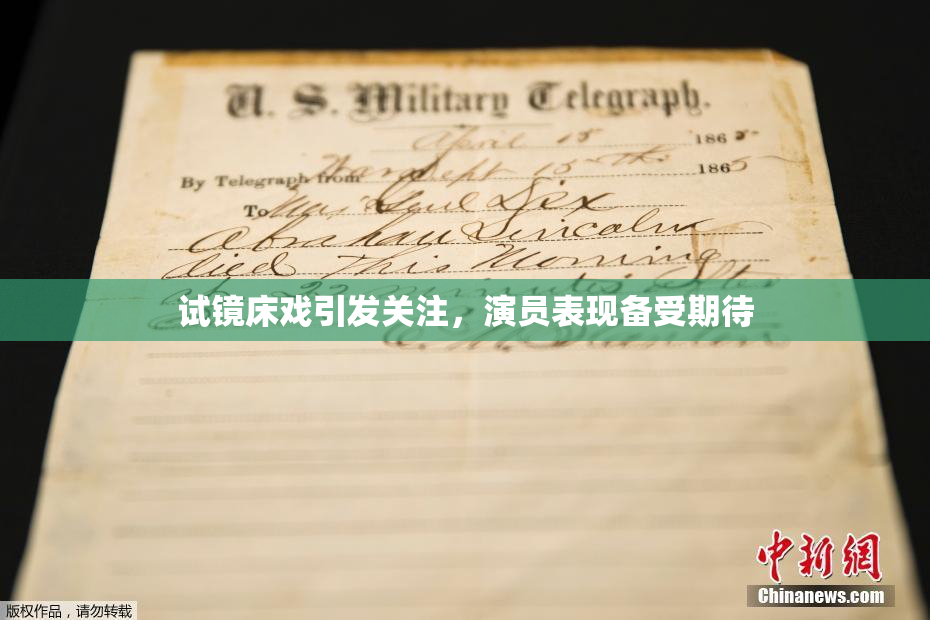 U. S. Military Telegraph.
April 15 1865
By Telegraph from War Dept 15th 1865
To Maj Genl Dix
Abraham Lincoln
died This Morning
at 22 minutes after
试镜床戏引发关注，演员表现备受期待
E. M. Stanton
中新网
Chinanews.com
版权作品，请勿转载